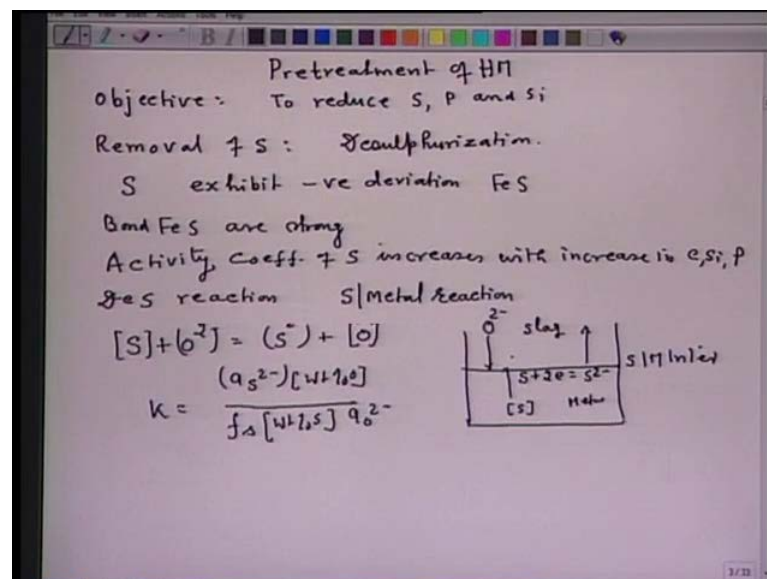 Pretreatment of HM
Objective: To reduce S, P and Si
Removal of S: Desulphurization.
S exhibit -ve deviation FeS
Bond FeS are strong
Activity Coeff. of S increases with increase in C, Si, P
DeS reaction S|Metal Reaction
[S]+(O²) = (S⁻) + [O]
K = (a_S²⁻)[wt%O] / f_s [wt%S] a_O²⁻
O²⁻ slag
S+2e = S²⁻ S|M Inter
[S] Metal
3/33